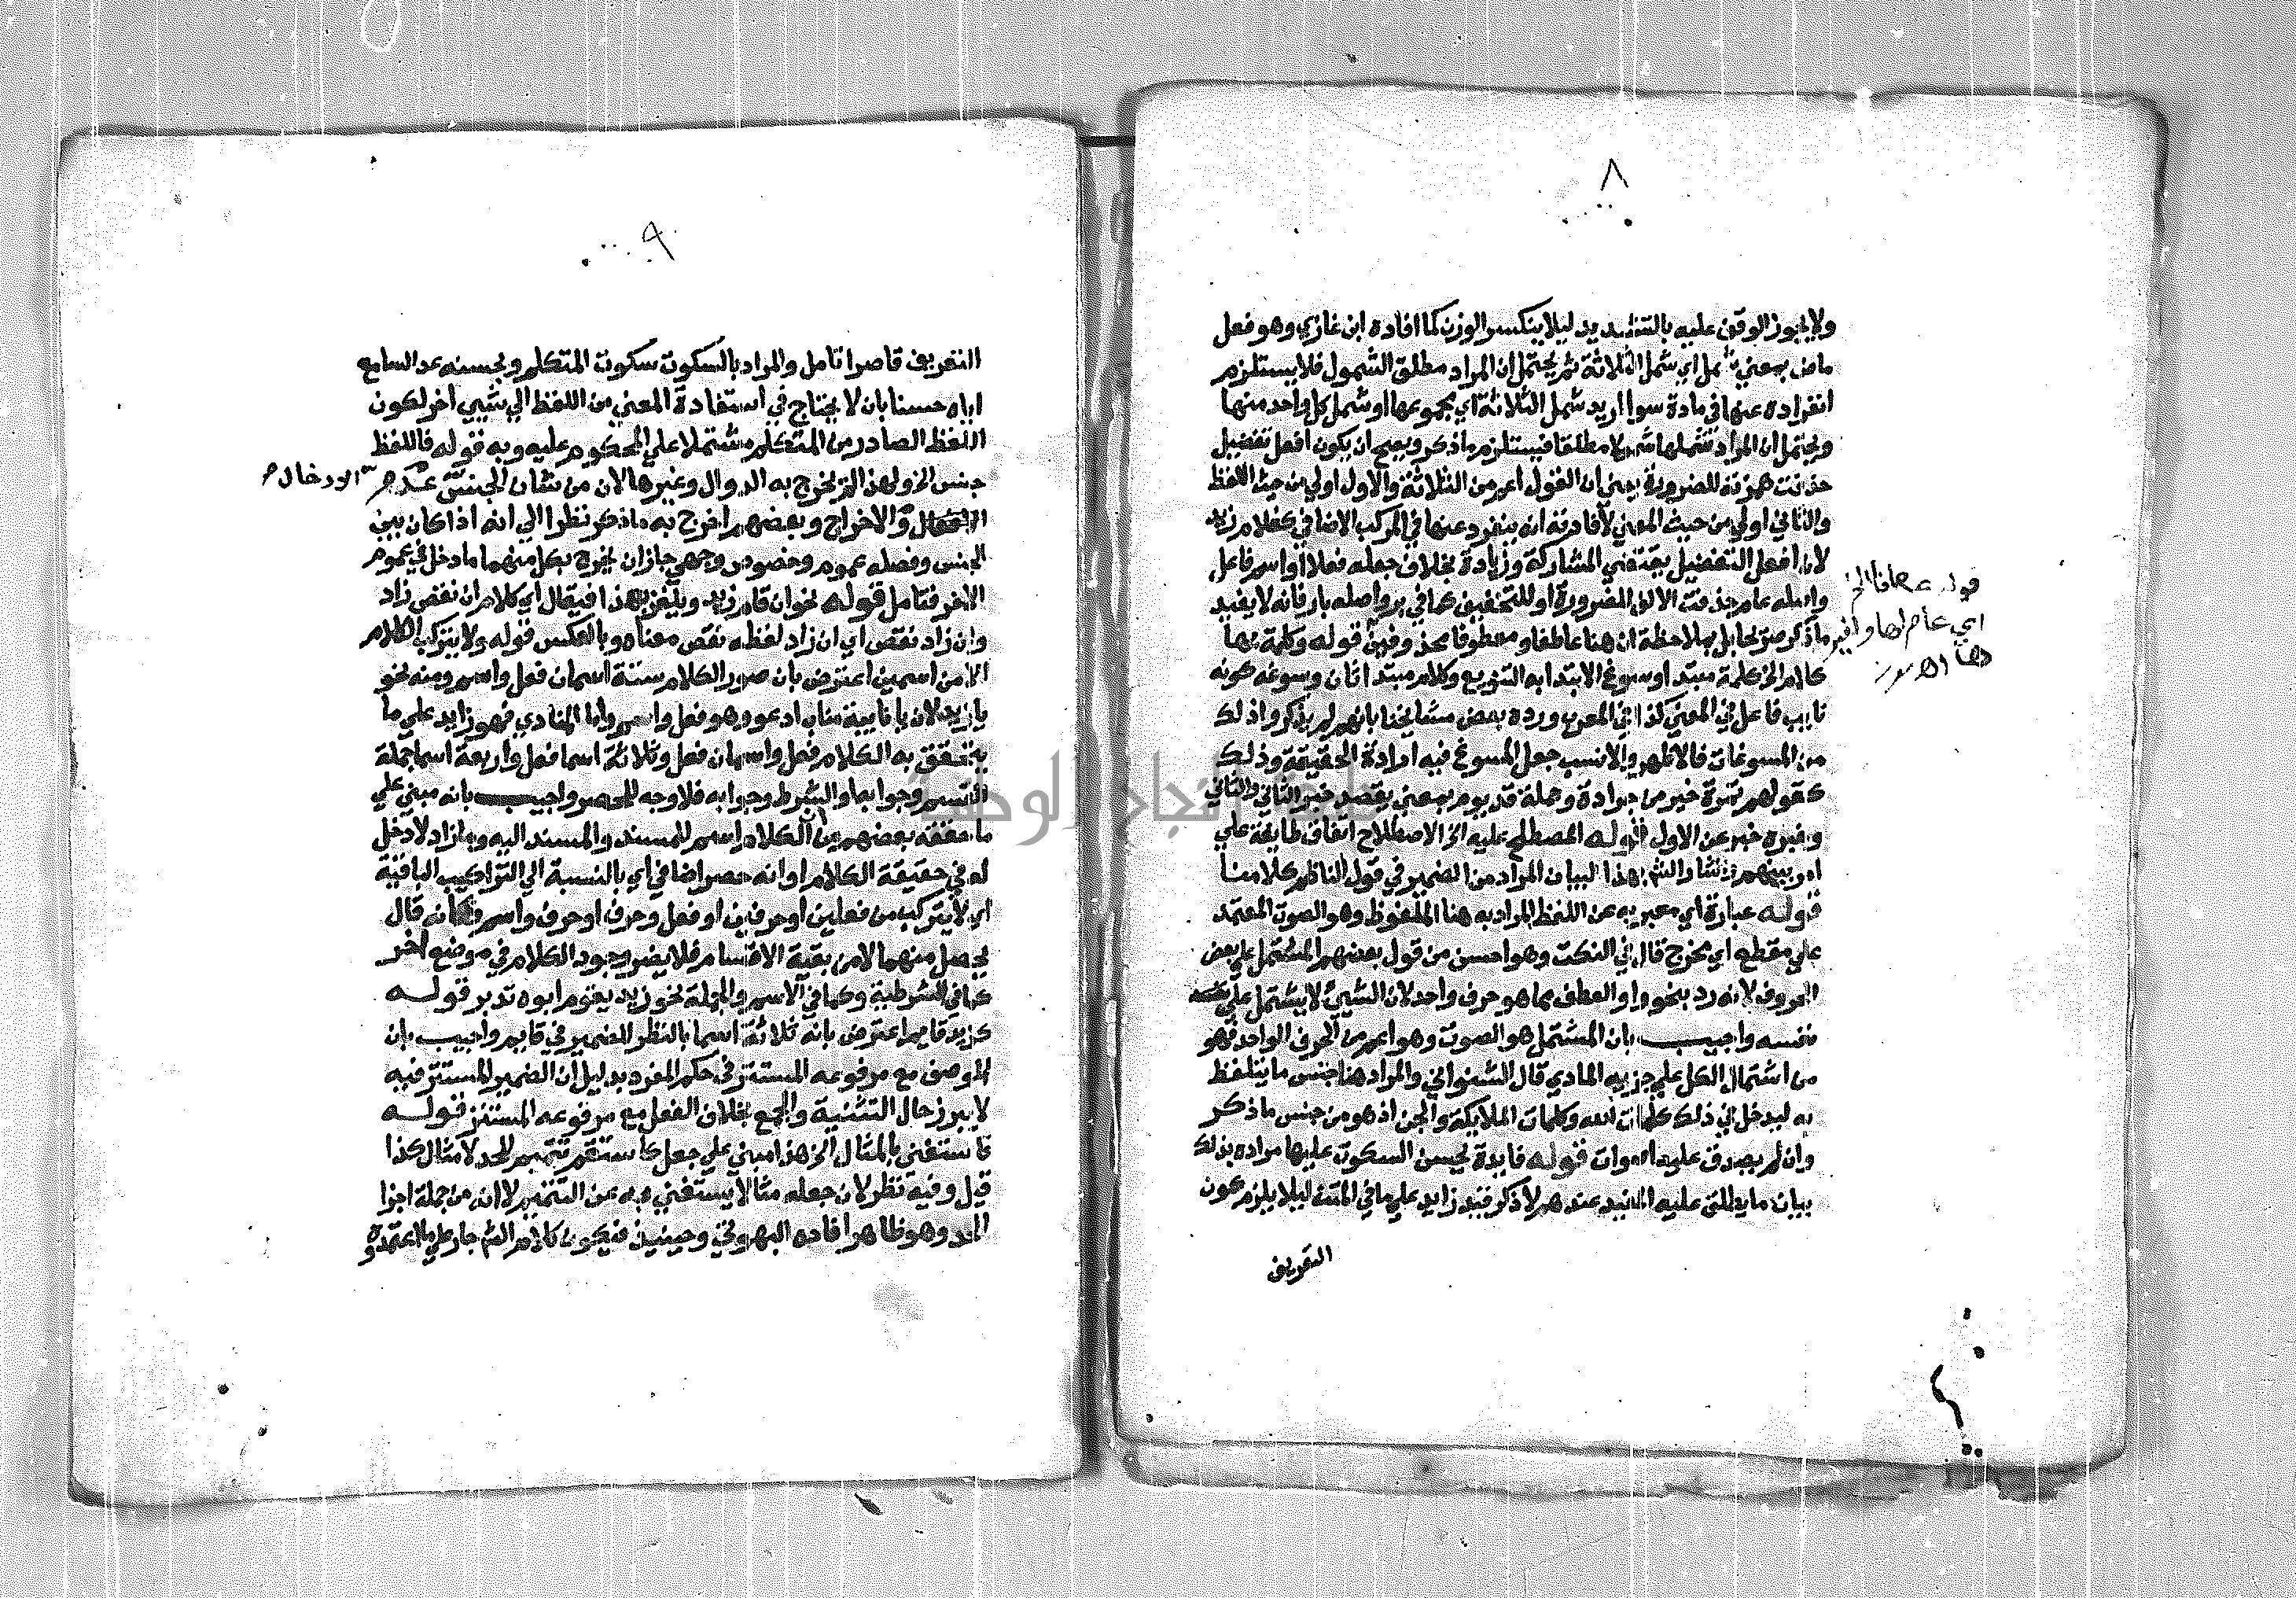 ٨
ولا يجوز الوقف عليه بالتشديد ليلا ينكسر الوزن كما افاده ابن غازي وهو فعل
ماض بمعني شمل اي شمل الثلاثة ثم يحتمل ان المراد مطلق الشمول فلا يستلزم
انفراده عنها في مادة سوا اريد شمل الثلاثة اي مجموعها او شمل كل واحد منها
ويحتمل ان المراد شملها شمولا مطلقا فيستلزم ما ذكر ويصح ان يكون افعل تفضيل
حذفت همزته للضرورة يعني ان القول اعم من الثلاثة والاول اولي من حيث اللفظ
والثاني اولي من حيث المعني لافادته انه ينفرد عنها في المركب الاضافي كغلام زيد
لان افعل التفضيل يقتضي المشاركة وزيادة بخلاف جعله فعلا او اسم فاعل
واصله عام حذفت الالف للضرورة او للتخفيف كما في بر واصله بار فانه لا يفيد
ما ذكر صريحا بل بملاحظة ان هنا عاطفا ومعطوفا محذوفين قوله وكلمة بها
كلام الخ كلمة مبتدا وسوغ الابتدا به التنويع وكلام مبتدا ثان وسوغه كونه
نايب فاعل في المعني كذا في المعرب ورده بعض مشايخنا بانهم لم يذكروا ذلك
من المسوغات فالاظهر والانسب جعل المسوغ فيه ارادة الحقيقة وذلك
كقولهم تمرة خير من جرادة وجملة قد يوم بمعني يقصد خبر الثاني والثاني
وخبره خبر عن الاول قوله المصطلح عليه الخ الاصطلاح اتفاق طايفة علي
امر بينهم واشار الش بهذا البيان المراد من الضمير في قول الناظم كلامنا
قوله عبارة اي معبر به عن اللفظ المراد به هنا الملفوظ وهو الصوت المعتمد
علي مقطع اي مخرج قال في النكت وهو احسن من قول بعضهم المشتمل علي بعض
الحروف لانه رد بنحو واو العطف مما هو حرف واحد لان الشيئ لا يشتمل علي
نفسه واجيب بان المشتمل هو الصوت وهو اعم من الحرف الواحد فهو
من اشتمال الكل علي جزييه المادي قال الشنواني والمراد هنا جنس ما يتلفظ
به ليدخل في ذلك كلمات الله وكلمات الملايكة والجن اذ هو من جنس ما ذكر
وان لم يصدق عليه اصوات قوله فايدة يحسن السكوت عليها مراده بذلك
بيان ما يطلق عليه المفيد عندهم لا ذكر قيد زايد علي ما في المتن ليلا يلزم كون
التعريف
قوله
اي عام لها و
٩
التعريف قاصرا تامل والمراد بالسكوت سكوت المتكلم ويحسنه عد السامع
اياه حسنا بان لا يحتاج في استفادة المعني من اللفظ الي شيئ اخر لكون
اللفظ الصادر من المتكلم مشتملا علي المحكوم عليه وبه قوله فاللفظ
جنس الخ ولهذا لم يخرج به الدوال وغيرها لان من شان الجنس عدم الادخال
والاخراج وبعضهم اخرج به ما ذكر نظرا الي انه اذا كان بين
الجنس وفصله عموم وخصوص وجهي جاز ان يخرج بكل منهما ما دخل في عموم
الاخر فتامل قوله نحو ان قام زيد ويلغز بهذا فيقال اي كلام ان نقص زاد
وان زاد نقص اي ان زاد لفظه نقص معناه وبالعكس قوله ولا يتركب الكلام
الا من اسمين اعترض بان صور الكلام ستة اسمان فعل واسم ومنه نحو
يا زيد لان يا نايبة مناب ادعو وهو فعل واسم واما المنادي فهو زايد علي ما
يتحقق به الكلام فعل واسمان فعل وثلاثة اسما فعل واربعة اسما جملة
القسم وجوابها والشرط وجوابه فلا وجه للحصر واجيب بانه مبني علي
ما حققه بعضهم من ان الكلام اسم للمسند والمسند اليه وما زاد لا دخل
له في حقيقة الكلام او انه حصر اضافي اي بالنسبة الي التراكيب الباقية
اي لا يتركب من فعلين او حرفين او فعل وحرف او حرف واسم فكانه قال
يحصل منهما لا من بقية الاقسام فلا يضر وجود الكلام في موضع اخر
كما في الشرطية وكما في الاسم والجملة نحو زيد يقوم ابوه تدبر قوله
كزيد قايم اعترض بانه ثلاثة اسما بالنظر للضمير في قايم واجيب بان
الوصف مع مرفوعه المستتر في حكم المفرد بدليل ان الضمير المستتر فيه
لا يبرز حال التثنية والجمع بخلاف الفعل مع مرفوعه المستتر قوله
فاستغني بالمثال الخ هذا مبني علي جعل كاستقم تتميم للحد لا مثال كذا
قيل وفيه نظر لان جعله مثالا يستغني به عن التتميم لا انه من جملة اجزا
الحد وهو ظاهر افاده البهوتي وحينيذ فيكون كلام الش جار علي ما اعتمدوه